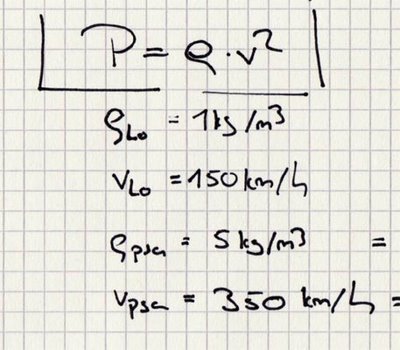 P = ρ · v²
ρLo = 1kg/m³
vLo = 150 km/h
ρpsa = 5 kg/m³ =
vpsa = 350 km/h =